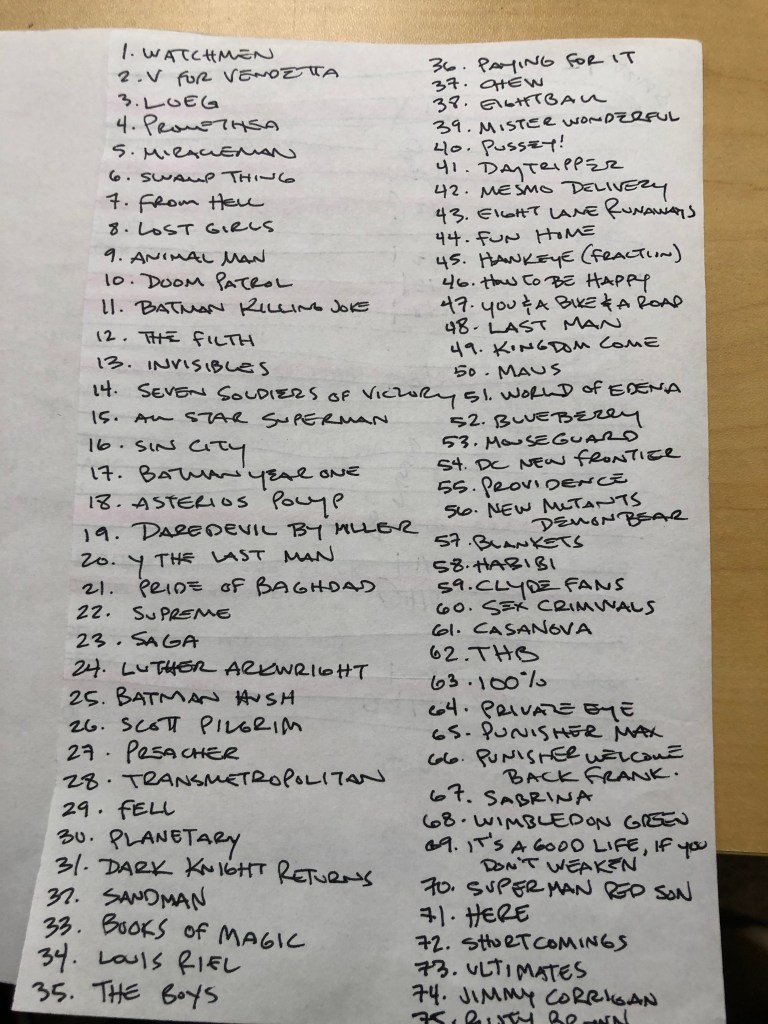 1. WATCHMEN
2. V FOR VENDETTA
3. LOEG
4. PROMETHEA
5. MIRACLEMAN
6. SWAMP THING
7. FROM HELL
8. LOST GIRLS
9. ANIMAL MAN
10. DOOM PATROL
11. BATMAN KILLING JOKE
12. THE FILTH
13. INVISIBLES
14. SEVEN SOLDIERS OF VICTORY
15. ALL STAR SUPERMAN
16. SIN CITY
17. BATMAN YEAR ONE
18. ASTERIOS POLYP
19. DAREDEVIL BY MILLER
20. Y THE LAST MAN
21. PRIDE OF BAGHDAD
22. SUPREME
23. SAGA
24. LUTHER ARKWRIGHT
25. BATMAN HUSH
26. SCOTT PILGRIM
27. PREACHER
28. TRANSMETROPOLITAN
29. FELL
30. PLANETARY
31. DARK KNIGHT RETURNS
32. SANDMAN
33. BOOKS OF MAGIC
34. LOUIS RIEL
35. THE BOYS
36. PAYING FOR IT
37. CHEW
38. EIGHTBALL
39. MISTER WONDERFUL
40. PUSSEY!
41. DAYTRIPPER
42. MESMO DELIVERY
43. EIGHT LANE RUNAWAYS
44. FUN HOME
45. HAWKEYE (FRACTION)
46. HOW TO BE HAPPY
47. YOU & A BIKE & A ROAD
48. LAST MAN
49. KINGDOM COME
50. MAUS
51. WORLD OF EDENA
52. BLUEBERRY
53. MOUSEGUARD
54. DC NEW FRONTIER
55. PROVIDENCE
56. NEW MUTANTS
DEMON BEAR
57. BLANKETS
58. HABIBI
59. CLYDE FANS
60. SEX CRIMINALS
61. CASANOVA
62. THB
63. 100%
64. PRIVATE EYE
65. PUNISHER MAX
66. PUNISHER WELCOME
BACK FRANK.
67. SABRINA
68. WIMBLEDON GREEN
69. IT'S A GOOD LIFE, IF YOU
DON'T WEAKEN
70. SUPERMAN RED SON
71. HERE
72. SHORTCOMINGS
73. ULTIMATES
74. JIMMY CORRIGAN
75. RUSTY BROWN